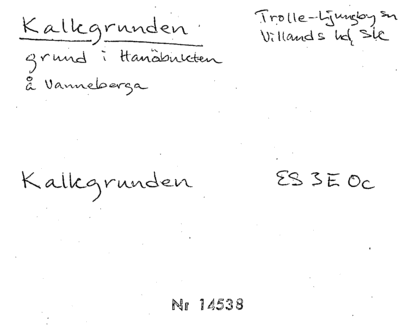 Kalkgrunden
Trolle-Ljungby sn
Villands hd Skå
grund i Hanöbukten
å Vanneberga
Kalkgrunden
ES 3E Oc
Nr 14538